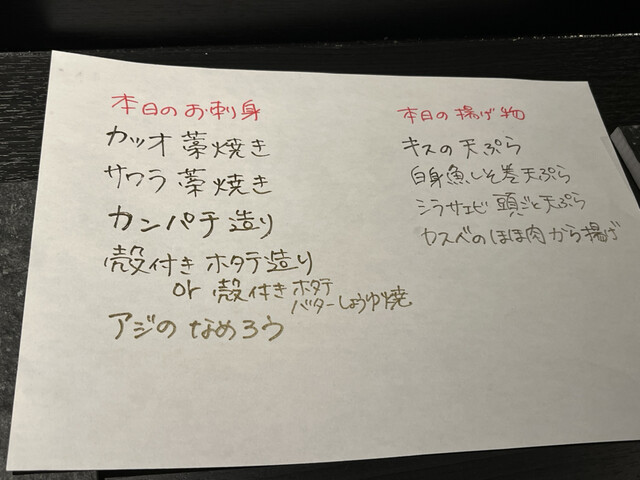 本日のお刺身
カツオ藁焼き
サワラ藁焼き
カンパチ造り
殻付きホタテ造り
or 殻付きホタテ
バターしょうゆ焼
アジのなめろう
本日の揚げ物
キスの天ぷら
白身魚しそ巻天ぷら
シラサエビ頭ごと天ぷら
カスベのほほ肉から揚げ